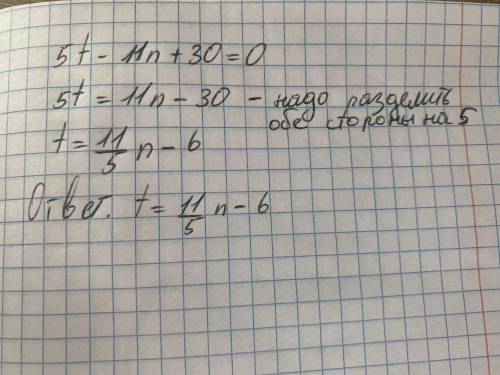 5t - 11n + 30 = 0
5t = 11n - 30 - надо разделить
обе стороны на 5
t = 11/5 n - 6
Ответ. t = 11/5 n - 6